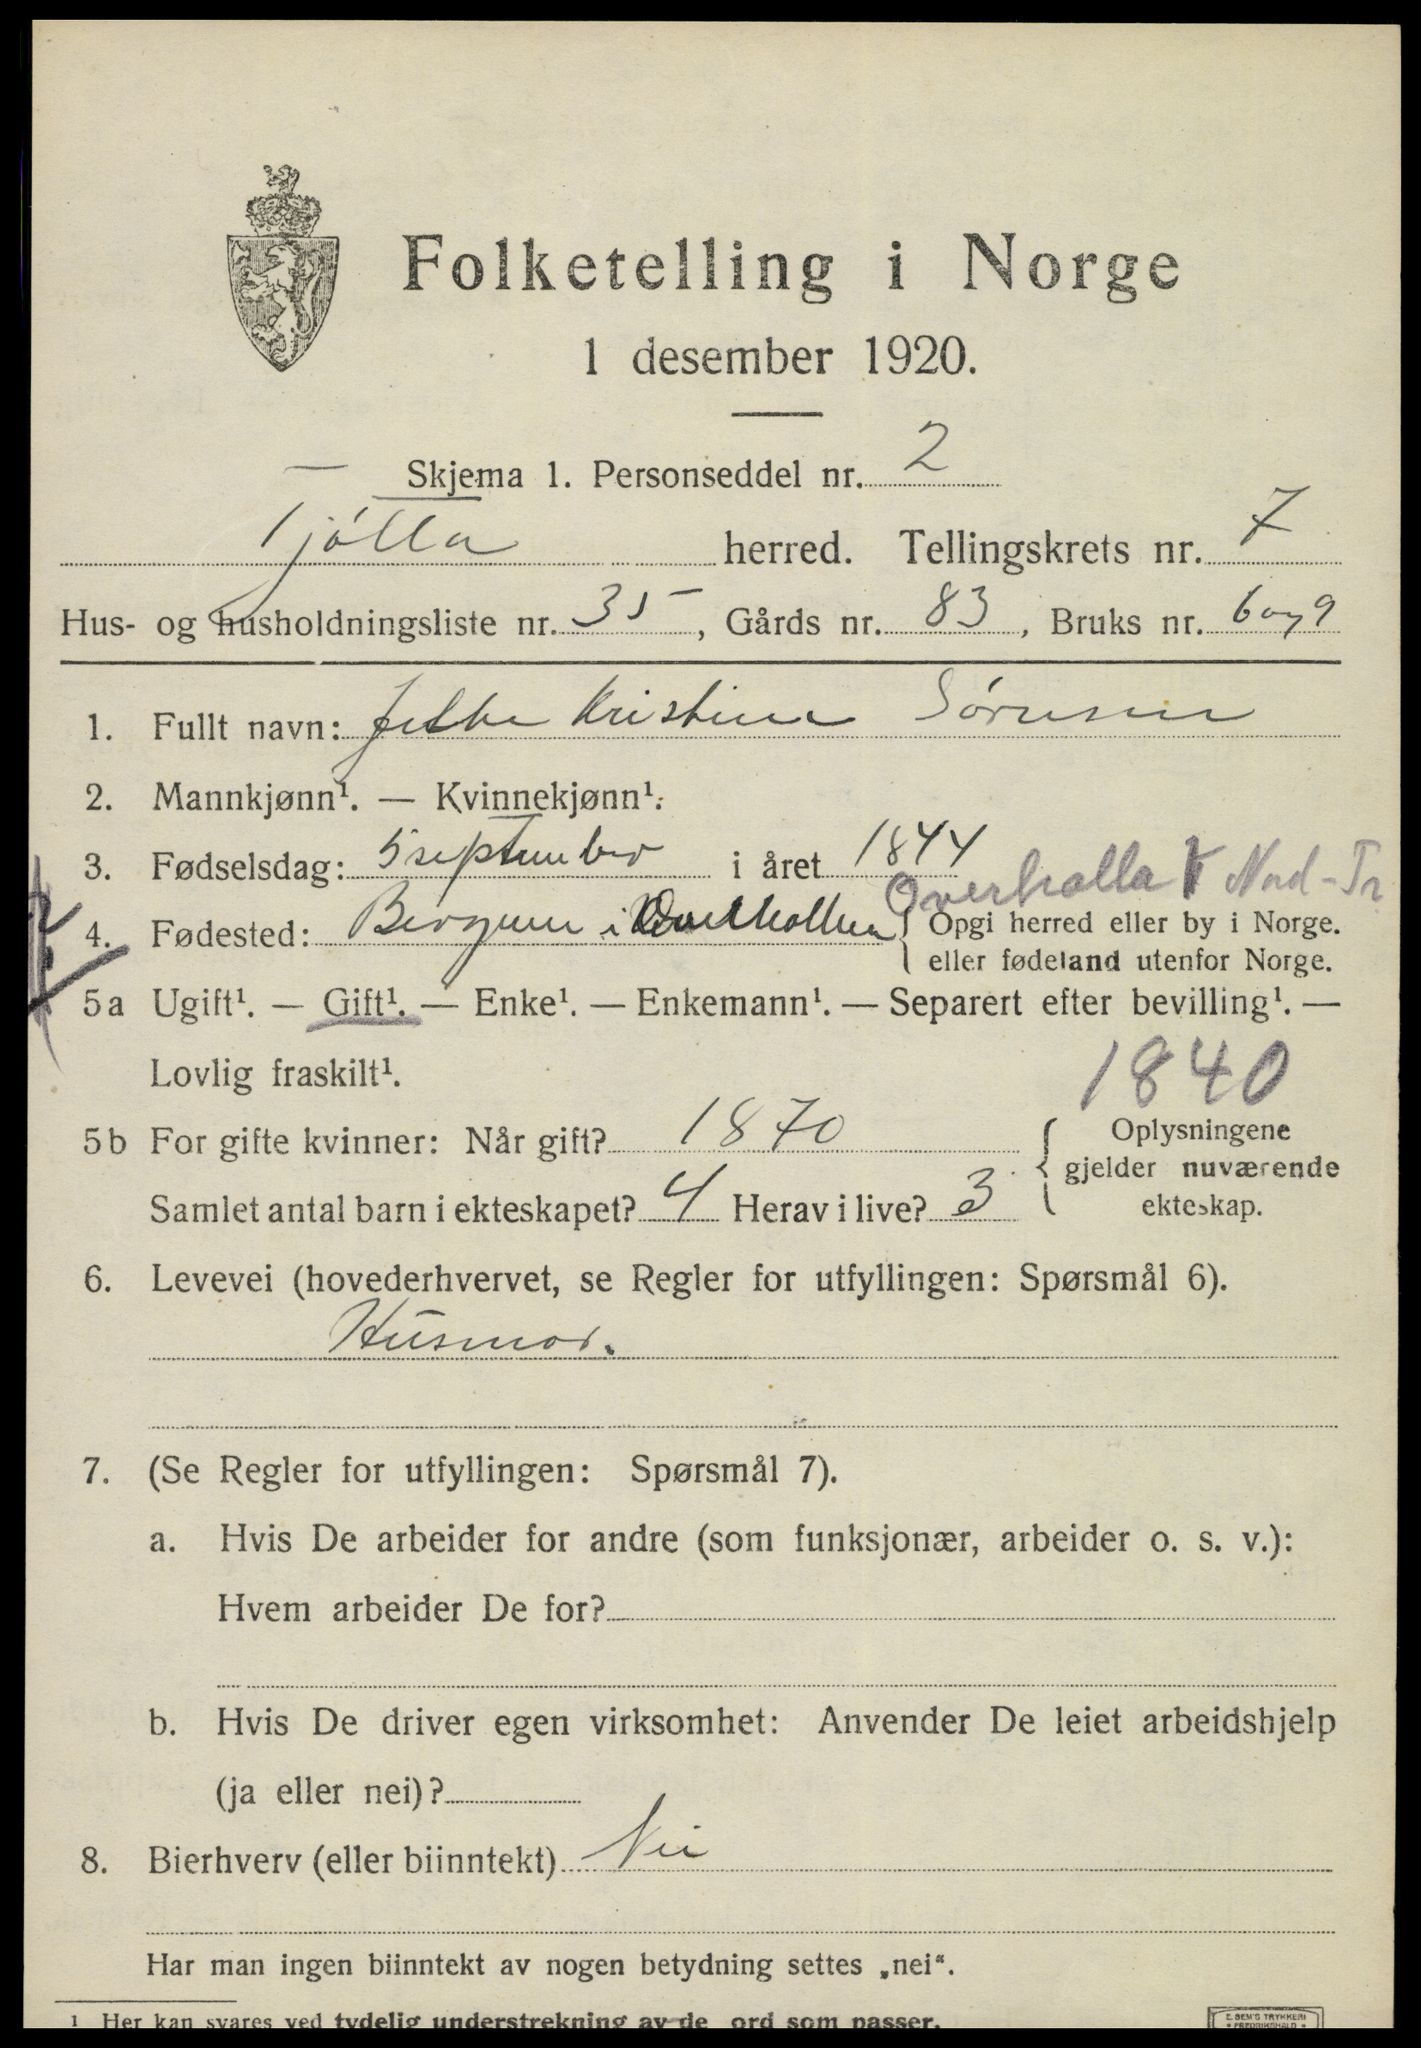 Folketelling i Norge
1 desember 1920.
Skjema 1. Personseddel nr. 2
Tjótta herred. Tellingskrets nr. 7
Hus- og husholdningsliste nr. 35, Gårds nr. 83, Bruks nr. 6 og 9
1. Fullt navn: Kristine Sórensen
2. Mannkjønn¹. — Kvinnekjønn¹.
3. Fødselsdag: 5 september i året 1844
Overhalla Nord-Tr.
4. Fødested: i Overhallen { Opgi herred eller by i Norge.
eller fødeland utenfor Norge.
5a Ugift¹. — Gift¹. — Enke¹. — Enkemann¹. — Separert efter bevilling¹. —
Lovlig fraskilt¹.
1840
5b For gifte kvinner: Når gift? 1870 { Oplysningene
gjelder nuværende
Samlet antal barn i ekteskapet? 4 Herav i live? 3 ekteskap.
6. Levevei (hovederhvervet, se Regler for utfyllingen: Spørsmål 6).
Husmor.
7. (Se Regler for utfyllingen: Spørsmål 7).
a. Hvis De arbeider for andre (som funksjonær, arbeider o. s. v.):
Hvem arbeider De for?
b. Hvis De driver egen virksomhet: Anvender De leiet arbeidshjelp
(ja eller nei)?
8. Bierhverv (eller biinntekt) Nei
Har man ingen biinntekt av nogen betydning settes „nei“.
¹ Her kan svares ved tydelig understrekning av de ord som passer.
E. SEM'S TRYKKERI
• FREDRIKSHALD •